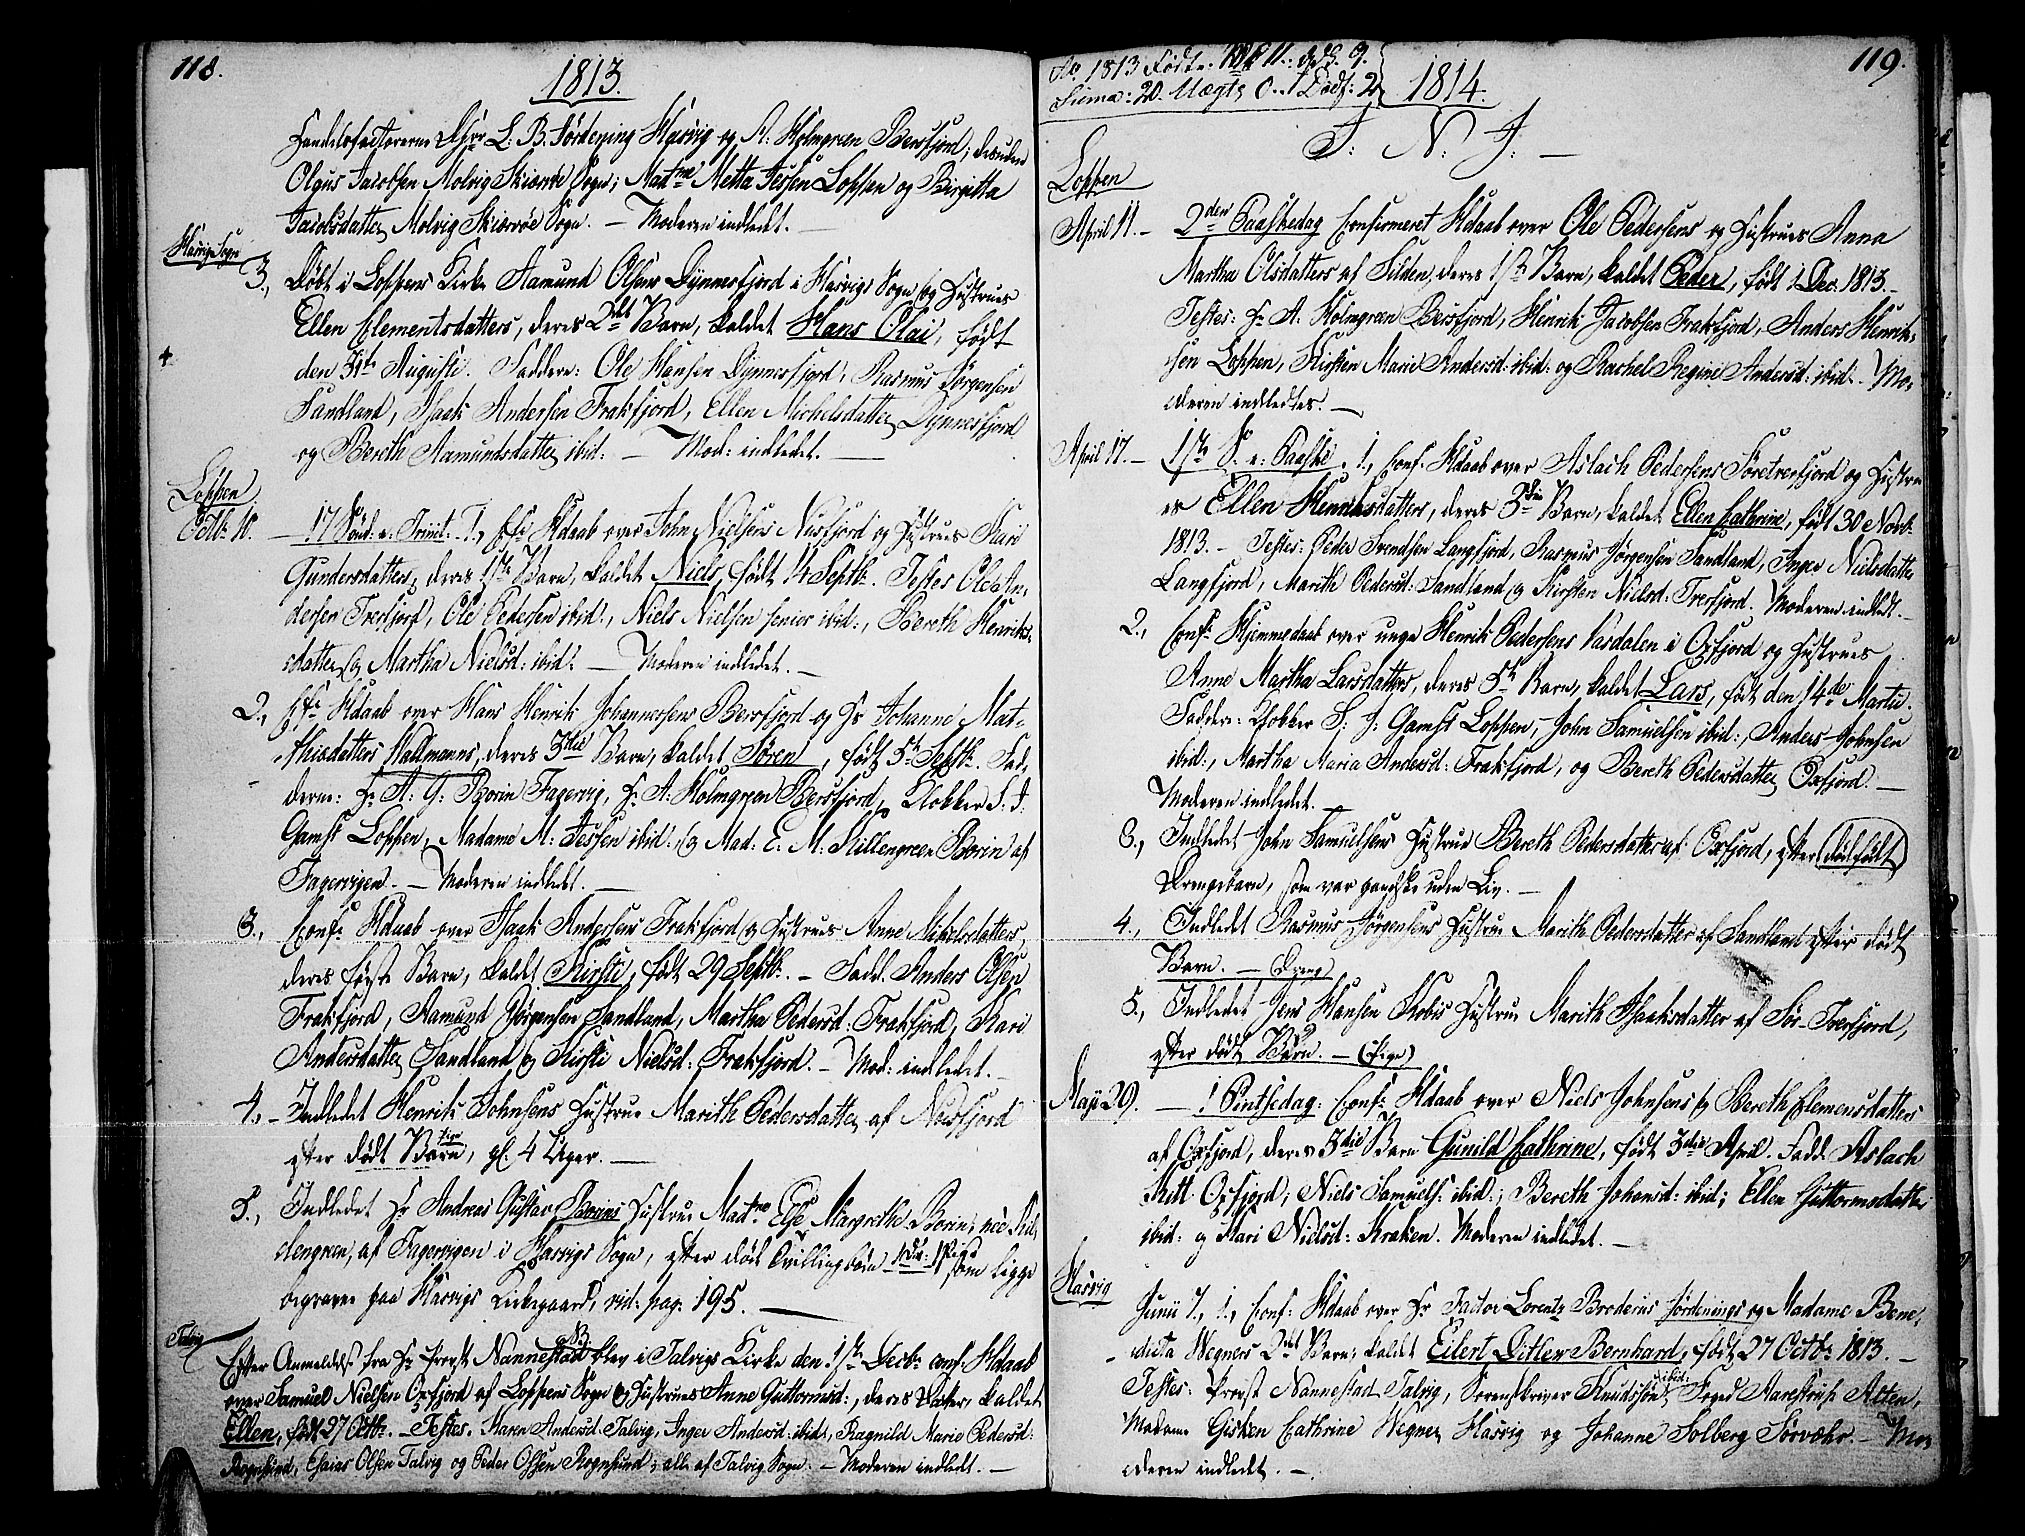 118.
1813.
Handelsfactorerne Dhrr L. B. Jördening Hasvig og A: Holmgreen Bersfjord; desuden
Olgus Jacobsen Molvig Skiervöe Sogn; Madme Metta Jessen Loppen og Birgitta
Jacobsdatter Molvig Skiervöe Sogn. — Moderen indledt. —
Hasvigs Sogn
3., Döbt i Loppens Kirke Aamund Olsens Dynnesfjord i Hasvigs Sogn og Hustrues
Ellen Clementsdatters, deres 2det Barn, kaldet Hans Olai, født
den 31te Augusti. Faddere: Ole Hansen Dynnesfjord, Rasmus Jørgensen
Sandland, Isaak Andersen Frakfjord, Ellen Michelsdatter Dynnesfjord
og Bereth Aamundsdatter ibid: — Mod: indledet. —
Loppen
Octb: 10. — 17 Sönd. e. Trinit. 1., Cfs Hdaab over John Nielsens Nusfjord og Hustrues Kari
Gundersdatters, deres 1ste Barn, kaldet Niels, født 14 Septb. Testes Ole An-
dersen Tverfjord, Ole Pedersen ibid:, Niels Nielsen senior ibid:, Bereth Henriks-
datter og Martha Nielsd: ibid: — Moderen indledet. —
2., Cfs Hdaab over Hans Henrik Johannesens Bersfjord og Hr Johanne Mat-
thisdatters Wallmanns, deres 3die Barn, kaldet Sören, født 5te Septb. Fad-
derne: Hr A. G. Borin Fagervig, Hr A: Holmgreen Bersfjord, Klokker S. J.
Gamst Loppen, Madame M: Jessen ibid: og Mad: E. M. Killengreen Borin af
Fagervigen. — Moderen indledet. —
3., Confs Hdaab over Isaak Andersens Frakfjord og Hustrues Anne Mikelsdatters,
deres første Barn, kaldet Kirsti, født 29 Septb. — Fadd. Anders Olsen
Frakfjord, Aamund Jörgensen Sandland, Martha Pedersd: Frakfjord, Kari
Andersdatter Sandland og Kirsti Nielsd: Frakfjord. — Mod: indledet. —
4. — Indledet Henrik Johnsens Hustrue Marith Pedersdatter af Nusfjord
efter dødt Barn, gl. 4 Uger. —
Pige
5., Indledet Hr Andreas Gustav Borins Hustrue Madme Else Margrethe Borin, née Kil-
lengreen, af Fagervigen i Hasvigs Sogn, efter död Tvillingbörn 1 Dr: 1 Pige som ligge
begravne paa Hasvigs Kirkegaard, vid: pag: 195. —
Talvig
Efter Anmeldelse fra Hr Provst Nannestad blev i Talvigs Kirke den 1ste Decbr conf: Hdaab
over Samuel Nielsen Oxfjord af Loppens Sogn og Hustrues Anne Guttormsd:, deres Datter, kaldet
Ellen, født 27 Octb. — Testes. Karen Andersd: Talvig, Inger Andersd: ibid:, Ragnild Marie Pedersd:
Rognsund, Esaias Olsen Talvig og Peder Olsen Rognsund; alle af Talvig Sogn: — Moderen indledt. —
119.
Ao 1813 Födte: 11.: 9.
Suma: 20. Uægte 0. Dødf: 2
1814.
I: N: J: —
Loppen
April 11. — 2den Paaskedag Confirmeret Hdaab over Ole Pedersens og Hustrues Anna
Martha Olsdatters af Silden, deres 1ste Barn, kaldet Peder, født 1 Dec. 1813. —
Testes: Hr A: Holmgreen Bersfjord, Henrik Jacobsen Frakfjord, Anders Henrik-
sen Loppen, Kirsten Marie Andersd: ibid: og Rachel Regine Andersd: ibid: — Mo-
deren indledtes. —
April 17. — 1ste S. e: Paaske. 1., Conf. Hdaab over Aslach Pedersens Söretverfjord og Hustru
es Ellen Henriksdatters, deres 3die Barn, kaldet Ellen Cathrine, født 30 Novb:
1813. — Testes: Peder Svendsen Langfjord, Rasmus Jørgensen Sandland, Inger Nielsdatter
Langfjord, Marith Pedersd: Sandland og Kirsten Nielsd: Tverfjord. Moderen indledt. —
2., Confs Hjemmedaab over unge Henrik Pedersens Vasdalen i Oxfjord og Hustrues
Anne Martha Larsdatters, deres 5te Barn, kaldet Lars, født den 14de Martii.
Faddere: Klokker S: J: Gamst Loppen, John Samuelsen ibid:, Anders Johnsen
ibid:, Martha Maria Andersd: Frakfjord, og Bereth Pedersdatter Oxfjord. —
Moderen indledet. —
3., Indledet John Samuelsens Hustrue Bereth Pedersdatter af Oxfjord, efter dødfödt
Drengebarn, som var ganske uden Liv. —
4., Indledet Rasmus Jörgensens Hustrue Marith Pedersdatter af Sandland efter dødt
Barn. — (Dreng)
5., Indledet Jens Hansen Kobis Hustrue Marith Isaaksdatter af Sör-Tverfjord,
efter dødt Barn. — (Pige)
Maji 29. — 1 Pintsedag: Confs Hdaab over Niels Johnsens og Bereth Clemensdatters
af Oxfjord, deres 3die Barn Gunild Cathrine, født 3die April. Fadd. Aslach
Kitt Oxfjord, Niels Samuels: ibid:, Bereth Johansd: ibid; Ellen Guttormsdatter
ibid: og Mari Nielsd: Kraken. Moderen indledet. —
Hasvig
Junii 7., 1., Conf: Hdaab over Hr Factor Lorentz Broderus Jördenings og Madame Bene-
dicta Wegners 2det Barn, kaldt Eilert Ditlev Bernhard, født 27 Octb: 1813. —
Testes: Provst Nannestad Talvig, Sorenskriver Knudssön ibid:, Foged Aarestrup Alten,
Madame Gisken Cathrine Wegner Hasvig og Johanne Solberg Sörvær. — Mo-
deren indledet. —